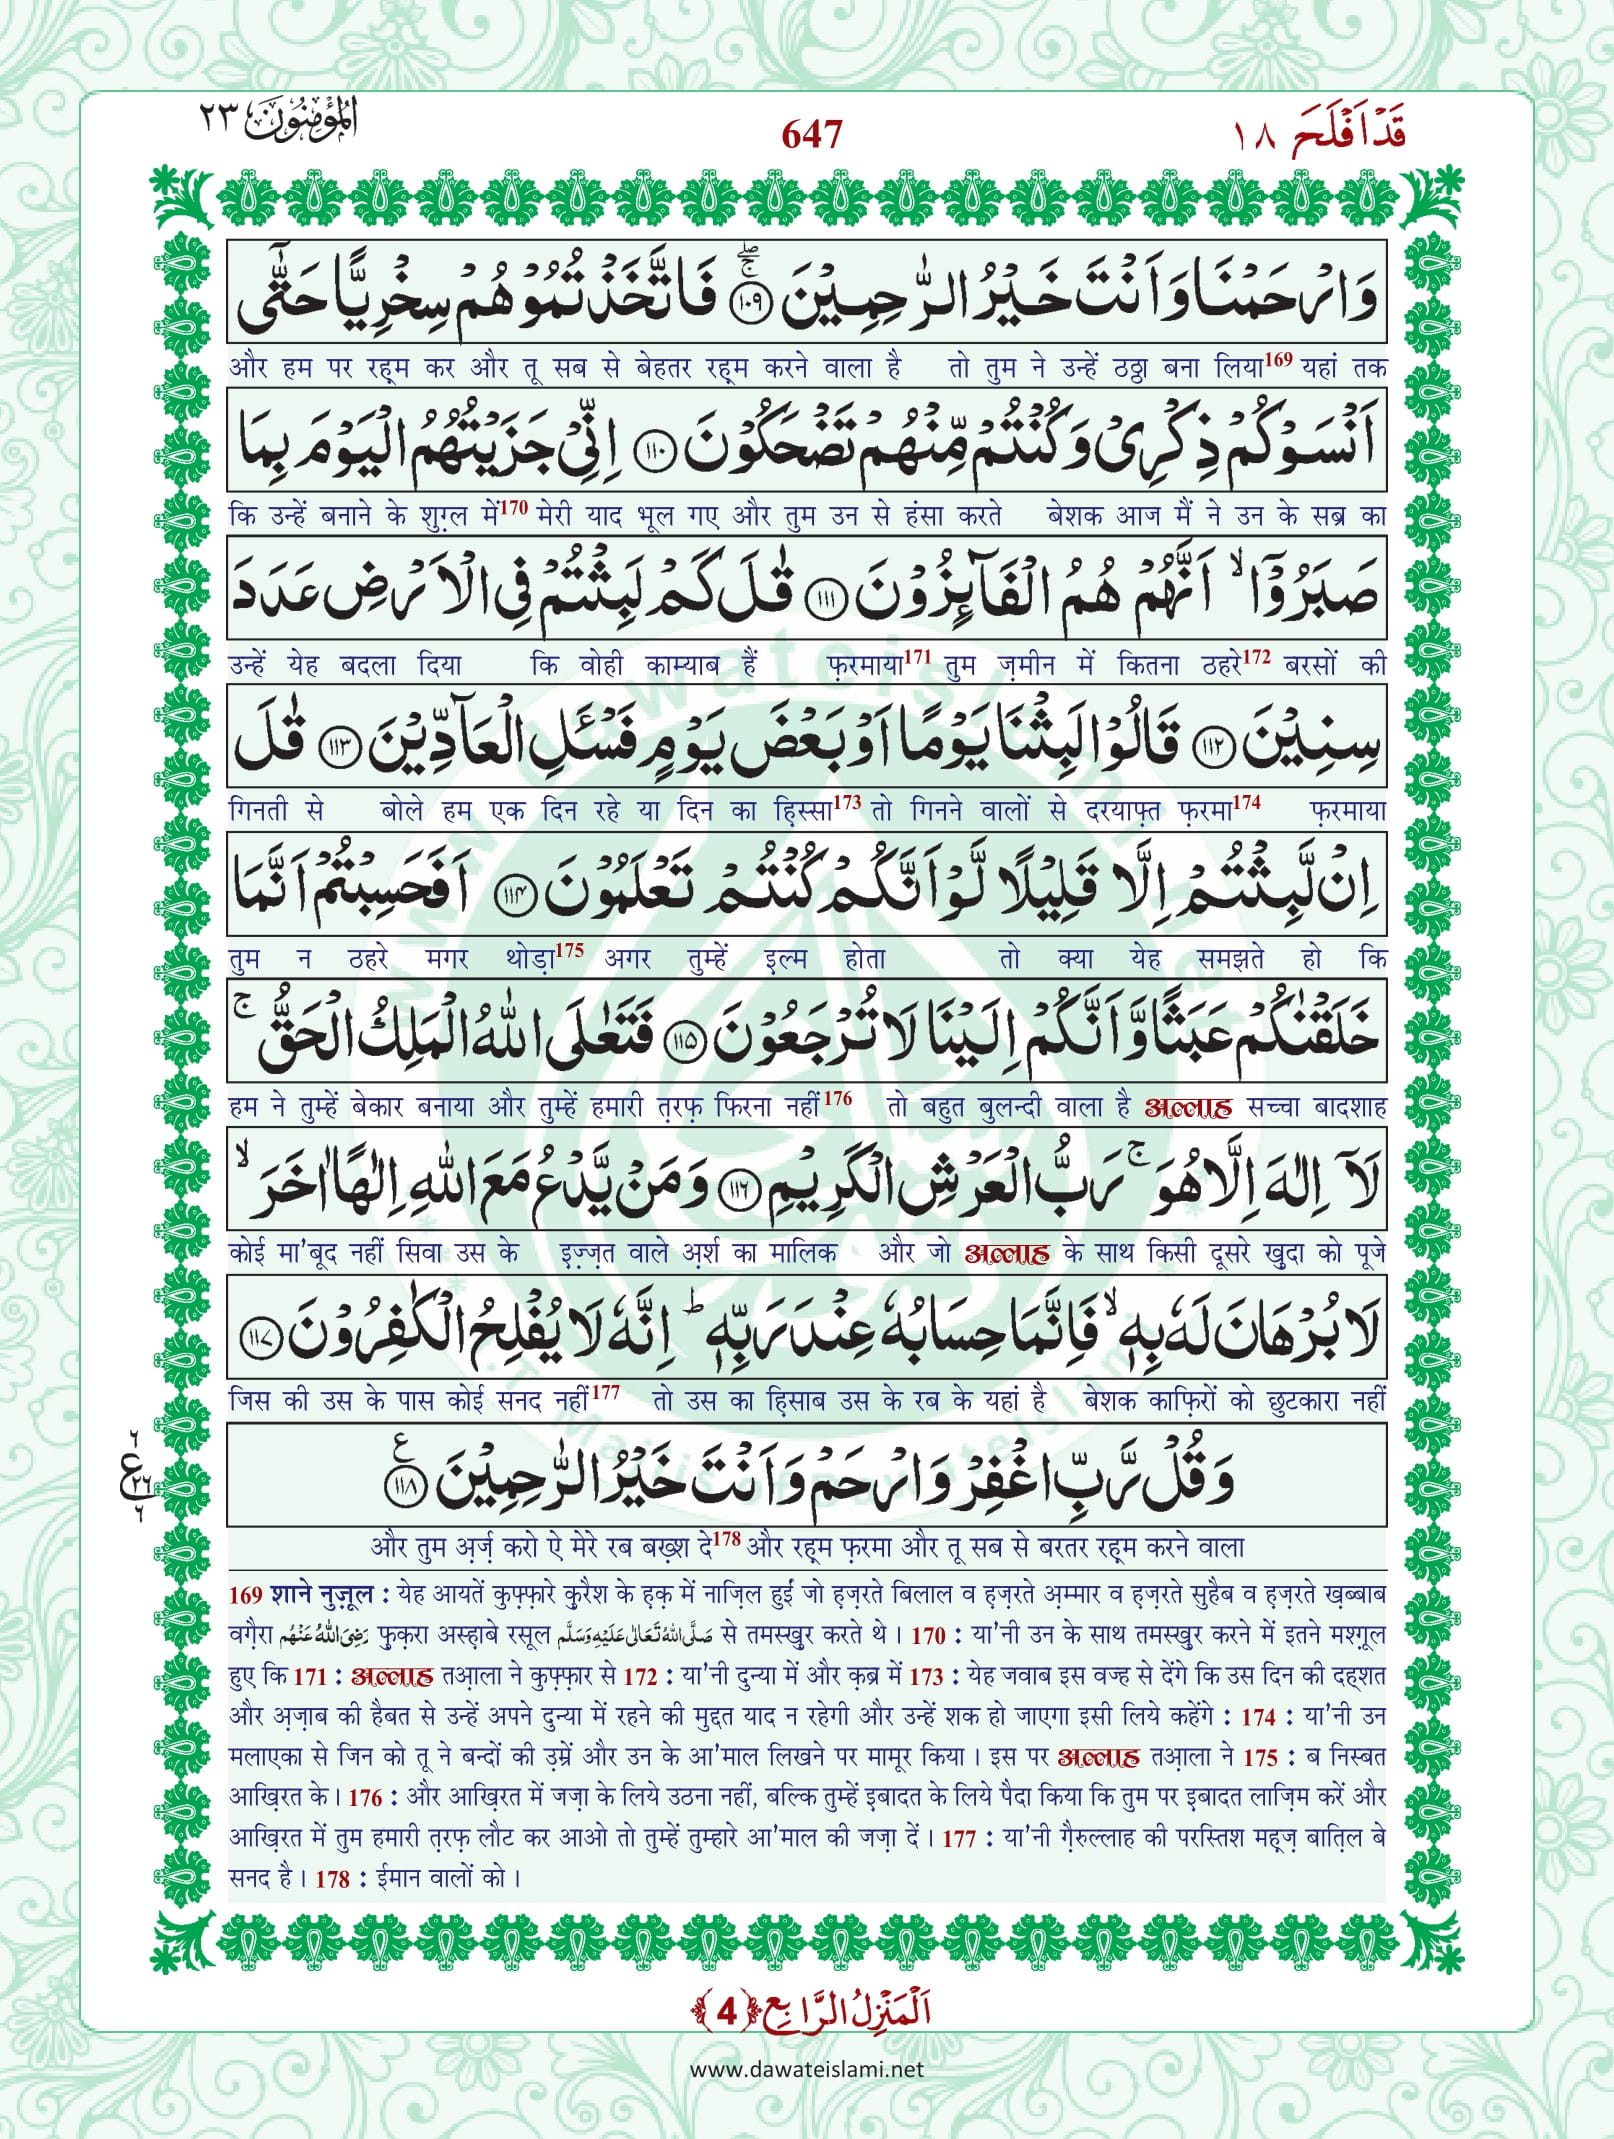 قَدْ اَفْلَحَ ١٨
647
الْمُؤْمِنُوْن ٢٣
وَارْحَمْنَا وَاَنْتَ خَيْرُ الرّٰحِمِيْنَ ﴿۱۰۹﴾ۚۖ فَاتَّخَذْتُمُوْهُمْ سِخْرِيًّا حَتّٰۤى
और हम पर रह्म कर और तू सब से बेहतर रह्म करने वाला है तो तुम ने उन्हें ठठ्ठा बना लिया169 यहां तक
اَنْسَوْكُمْ ذِكْرِىْ وَكُنْتُمْ مِّنْهُمْ تَضْحَكُوْنَ ﴿۱۱۰﴾ اِنِّىْ جَزَيْتُهُمُ الْيَوْمَ بِمَا
कि उन्हें बनाने के शुग़्ल में170 मेरी याद भूल गए और तुम उन से हंसा करते बेशक आज मैं ने उन के सब्र का
صَبَرُوْۤا ۙ اَنَّهُمْ هُمُ الْفَآىِٕزُوْنَ ﴿۱۱۱﴾ قٰلَ كَمْ لَبِثْتُمْ فِى الْاَرْضِ عَدَدَ
उन्हें येह बदला दिया कि वोही काम्याब हैं फ़रमाया171 तुम ज़मीन में कितना ठहरे172 बरसों की
سِنِيْنَ ﴿۱۱۲﴾ قَالُوْا لَبِثْنَا يَوْمًا اَوْ بَعْضَ يَوْمٍ فَسْـَٔلِ الْعَآدِّيْنَ ﴿۱۱۳﴾ قٰلَ
गिनती से बोले हम एक दिन रहे या दिन का हि़स्सा173 तो गिनने वालों से दरयाफ़्त फ़रमा174 फ़रमाया
اِنْ لَّبِثْتُمْ اِلَّا قَلِيْلًا لَّوْ اَنَّكُمْ كُنْتُمْ تَعْلَمُوْنَ ﴿۱۱۴﴾ اَفَحَسِبْتُمْ اَنَّمَا
तुम न ठहरे मगर थोड़ा175 अगर तुम्हें इ़ल्म होता तो क्या येह समझते हो कि
خَلَقْنٰكُمْ عَبَثًا وَّاَنَّكُمْ اِلَيْنَا لَا تُرْجَعُوْنَ ﴿۱۱۵﴾ فَتَعٰلَى اللّٰهُ الْمَلِكُ الْحَقُّ ۚ
हम ने तुम्हें बेकार बनाया और तुम्हें हमारी त़रफ़ फिरना नहीं176 तो बहुत बुलन्दी वाला है अल्लाह सच्चा बादशाह
لَاۤ اِلٰهَ اِلَّا هُوَ ۚ رَبُّ الْعَرْشِ الْكَرِيْمِ ﴿۱۱۶﴾ وَمَنْ يَّدْعُ مَعَ اللّٰهِ اِلٰهًا اٰخَرَ ۙ
कोई मा'बूद नहीं सिवा उस के इ़ज़्ज़त वाले अ़र्श का मालिक और जो अल्लाह के साथ किसी दूसरे ख़ुदा को पूजे
لَا بُرْهَانَ لَهٗ بِهٖ ۙ فَاِنَّمَا حِسَابُهٗ عِنْدَ رَبِّهٖ ؕ اِنَّهٗ لَا يُفْلِحُ الْكٰفِرُوْنَ ﴿۱۱۷﴾
जिस की उस के पास कोई सनद नहीं177 तो उस का हि़साब उस के रब के यहां है बेशक काफ़िरों को छुटकारा नहीं
وَقُلْ رَّبِّ اغْفِرْ وَارْحَمْ وَاَنْتَ خَيْرُ الرّٰحِمِيْنَ ﴿۱۱۸﴾ ع
٦ ع ٢٦ ٦
और तुम अ़र्ज़ करो ऐ मेरे रब बख़्श दे178 और रह्म फ़रमा और तू सब से बरतर रह्म करने वाला
169 शाने नुज़ूल : येह आयतें कुफ़्फ़ारे कु़रैश के ह़क़ में नाज़िल हुईं जो ह़ज़रते बिलाल व ह़ज़रते अ़म्मार व ह़ज़रते सुहैब व ह़ज़रते ख़ब्बाब
वग़ैरा رَضِىَ اللّٰهُ عَنْهُم फु़क़रा अस्ह़ाबे रसूल صَلَّى اللّٰهُ تَعَالٰى عَلَيْهِ وَسَلَّم से तमस्ख़ुर करते थे । 170 : या'नी उन के साथ तमस्ख़ुर करने में इतने मश्ग़ूल
हुए कि 171 : अल्लाह तआ़ला ने कुफ़्फ़ार से 172 : या'नी दुन्या में और क़ब्र में 173 : येह जवाब इस वज्ह से देंगे कि उस दिन की दह्शत
और अ़ज़ाब की हैबत से उन्हें अपने दुन्या में रहने की मुद्दत याद न रहेगी और उन्हें शक हो जाएगा इसी लिये कहेंगे : 174 : या'नी उन
मलाएका से जिन को तू ने बन्दों की उ़म्रें और उन के आ'माल लिखने पर मामूर किया । इस पर अल्लाह तआ़ला ने 175 : ब निस्बत
आख़िरत के । 176 : और आख़िरत में जज़ा के लिये उठना नहीं, बल्कि तुम्हें इबादत के लिये पैदा किया कि तुम पर इबादत लाज़िम करें और
आख़िरत में तुम हमारी त़रफ़ लौट कर आओ तो तुम्हें तुम्हारे आ'माल की जज़ा दें । 177 : या'नी गै़रुल्लाह की परस्तिश मह़्ज़ बातिल बे
सनद है । 178 : ईमान वालों को ।
اَلْمَنْزِلُ الرَّابِع ﴿4﴾
www.dawateislami.net